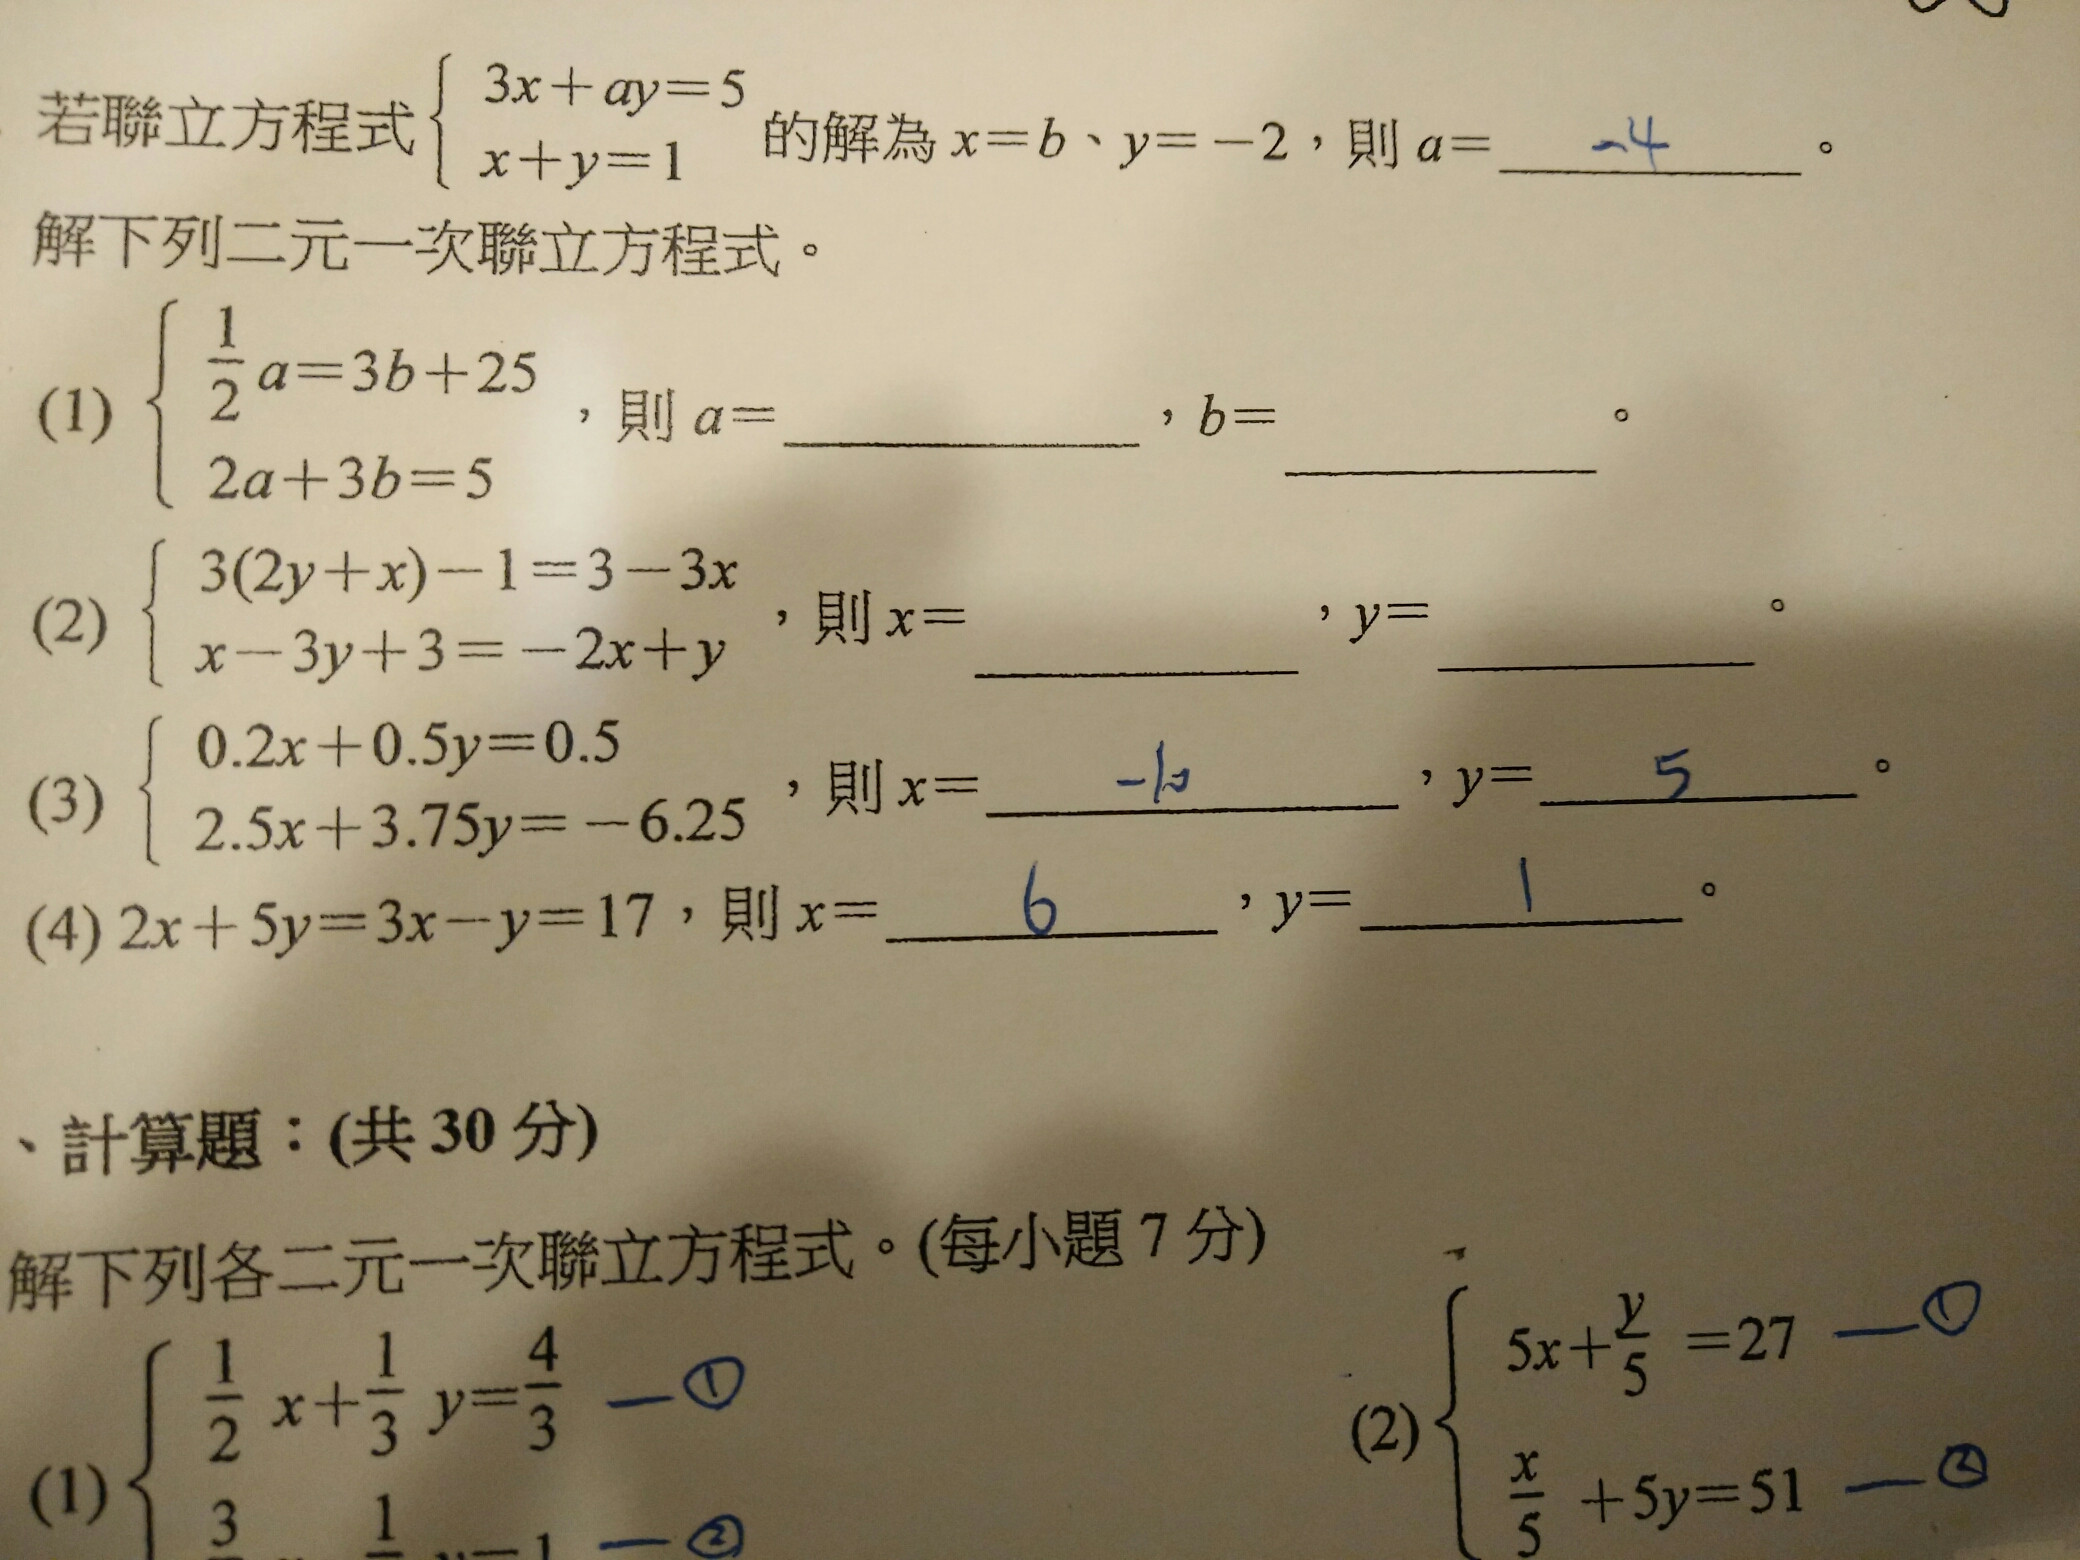 若聯立方程式 { 3x+ay=5 的解為 x=b、y=-2，則 a= -4 。
x+y=1
解下列二元一次聯立方程式。
(1) { 1/2 a=3b+25 ，則 a= ，b= 。
2a+3b=5
(2) { 3(2y+x)-1=3-3x ，則 x= ，y= 。
x-3y+3=-2x+y
(3) { 0.2x+0.5y=0.5 ，則 x= -10 ，y= 5 。
2.5x+3.75y=-6.25
(4) 2x+5y=3x-y=17，則 x= 6 ，y= 1 。
、計算題：(共 30 分)
解下列各二元一次聯立方程式。(每小題 7 分)
(1) { 1/2 x+1/3 y=4/3 —①
—②
(2) { 5x+y/5 =27 —①
x/5 +5y=51 —②